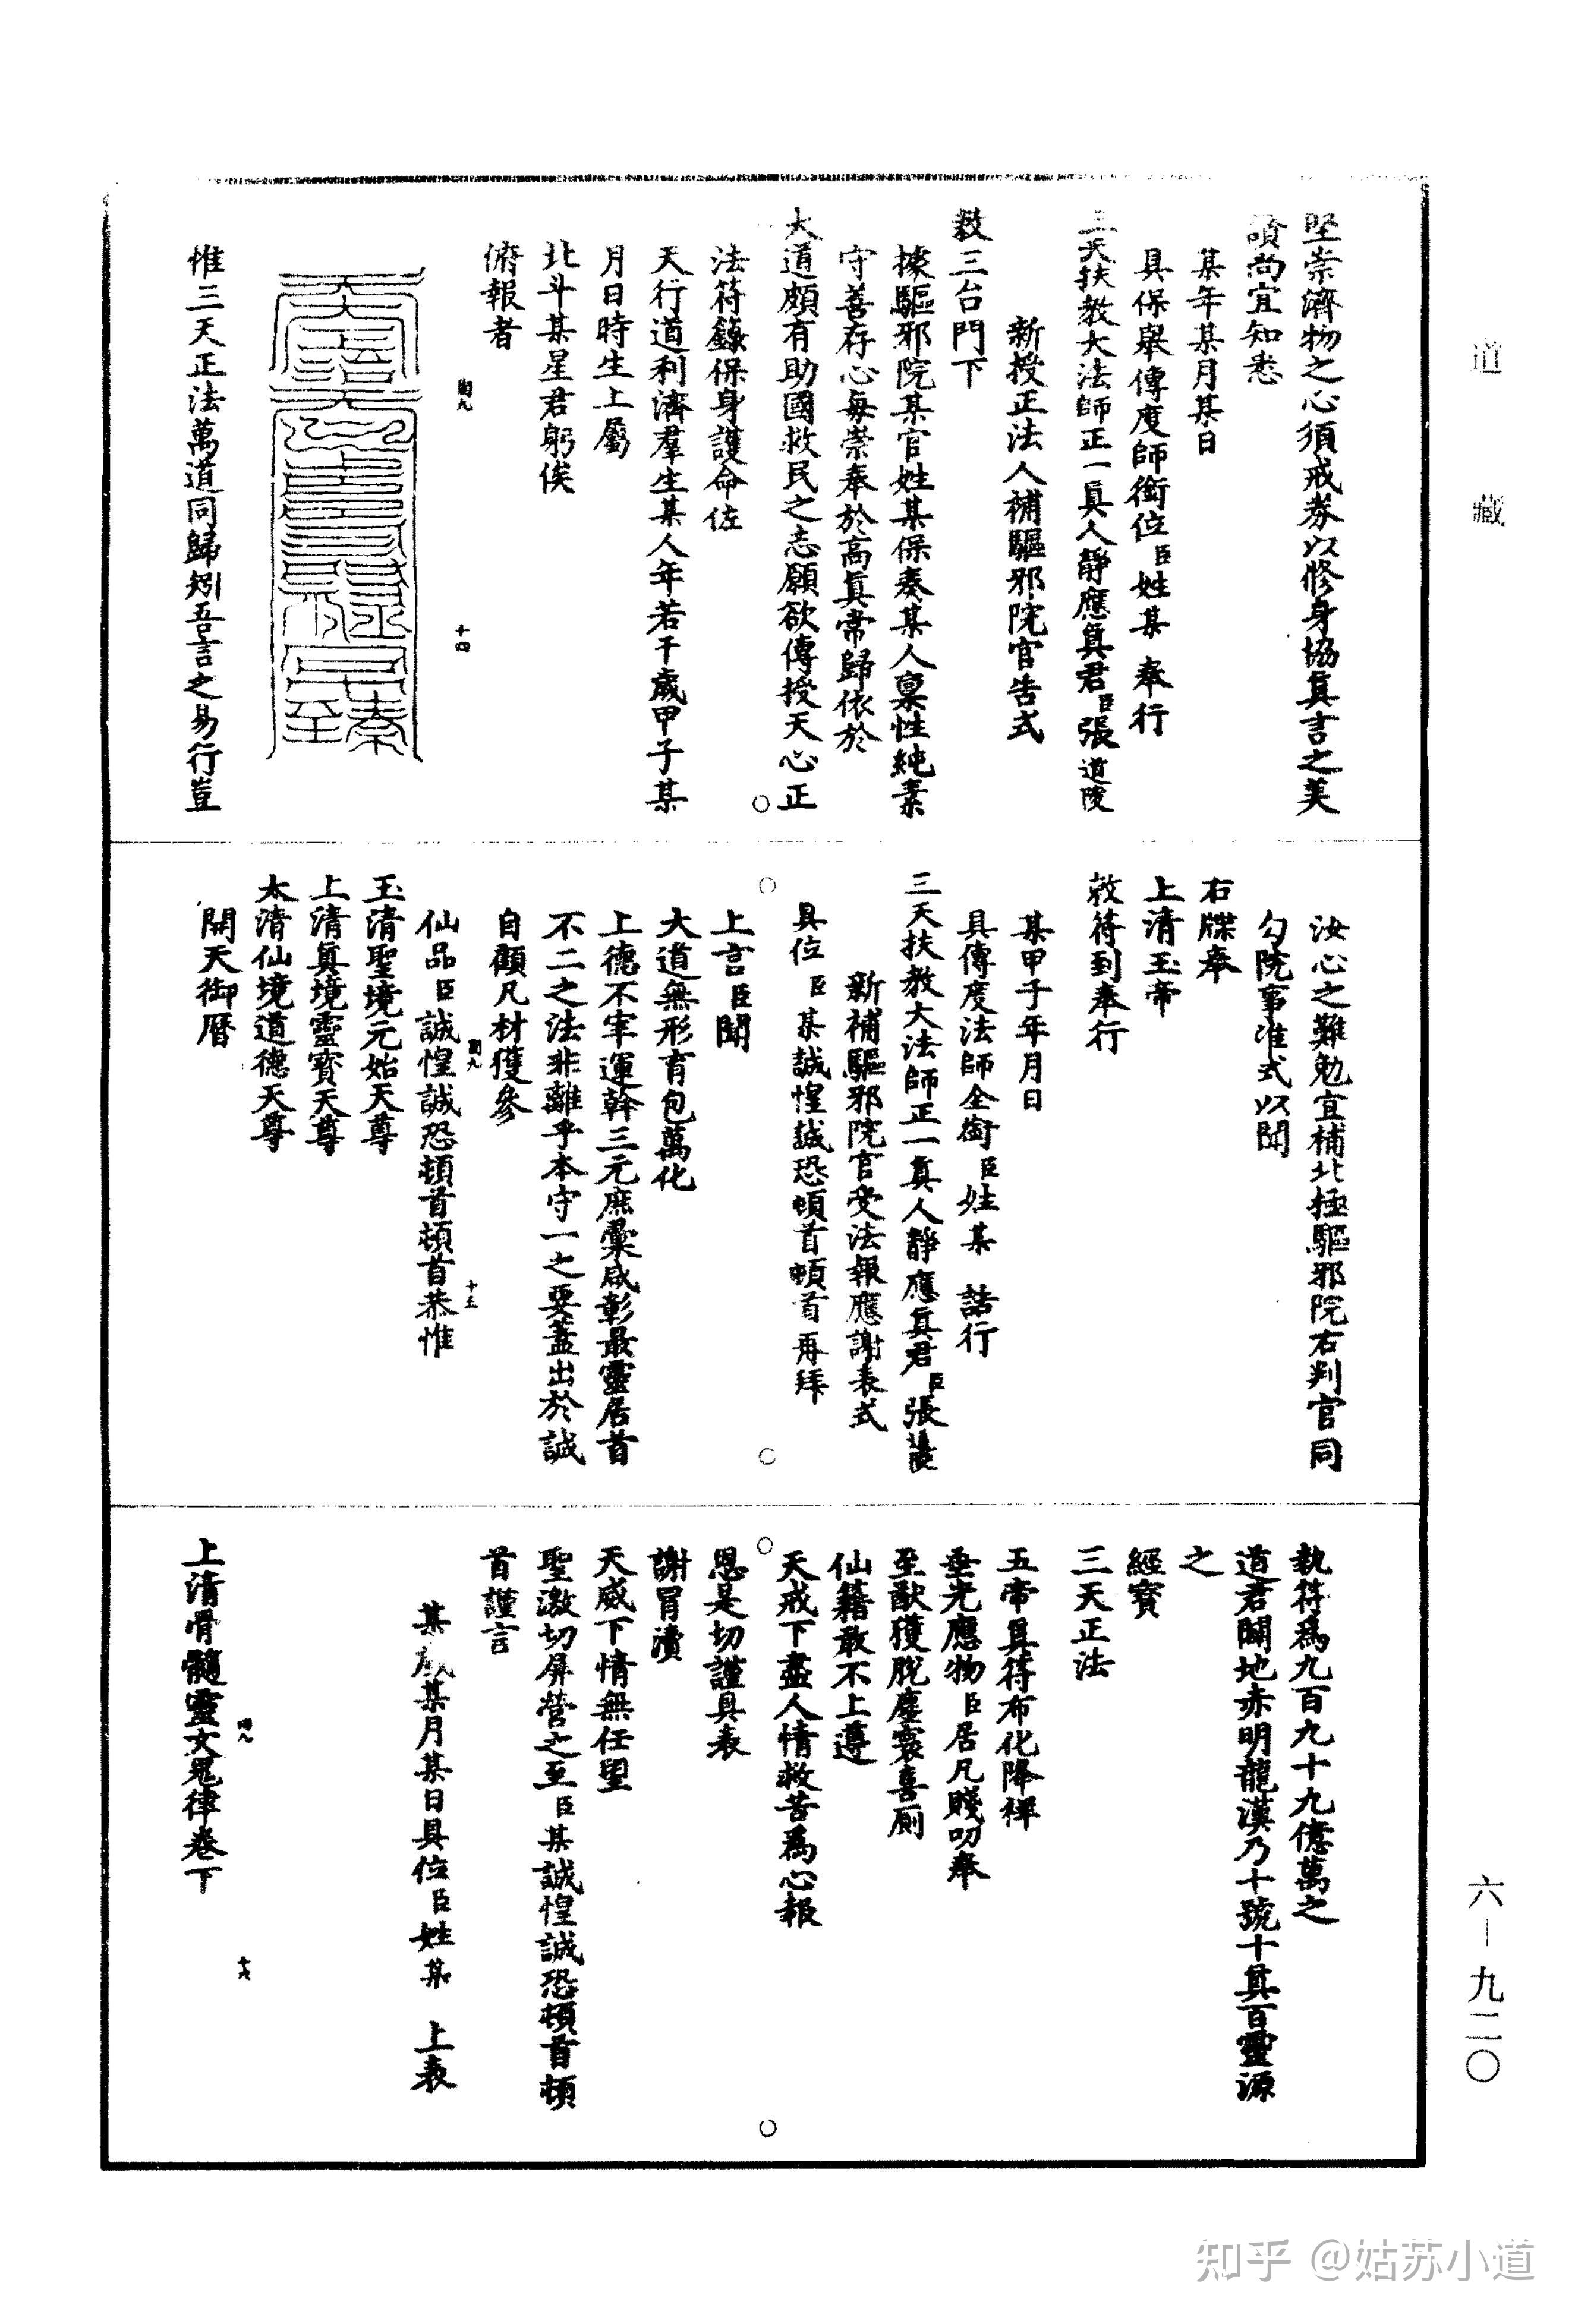 道藏
六-九二〇
堅崇濟物之心須戒券以修身協真言之美
讀尚宜知悉
某年某月某日
具保舉傳度師銜位臣姓某 奉行
三天扶教大法師正一真人靜應真君臣張道陵
新授正法人補驅邪院官告式
敕三台門下
據驅邪院某官姓某保奏某人稟性純素
守善存心每崇奉於高真常歸依於
大道頗有助國救民之志願欲傳授天心正
法符籙保身護命佐
天行道利濟羣生某人年若干歲甲子某
月日時生上屬
北斗某星君躬俟
俯報者
十四
惟三天正法萬道同歸矧吾言之易行豈
汝心之難勉宜補北極驅邪院右判官同
勾院事准式以聞
右牒奉
上清玉帝
敕符到奉行
某甲子年月日
具傳度法師全銜臣姓某 誥行
三天扶教大法師正一真人靜應真君臣張陵
新補驅邪院官受法報應謝表式
具位臣某誠惶誠恐頓首頓首再拜
上言臣聞
大道無形育包萬化
上德不宰運斡三元庶彙咸彰最靈居首
不二之法非離乎本守一之要蓋出於誠
自顧凡材獲參
仙品臣誠惶誠恐頓首頓首恭惟
十五
玉清聖境元始天尊
上清真境靈寶天尊
太清仙境道德天尊
開天御曆
執符為九百九十九億萬之
道君闢地赤明龍漢乃十號十真百靈源
之
經寶
三天正法
五帝真符布化降禪
垂光應物臣居凡賤叨奉
至猷獲脫塵寰喜廁
仙籍敢不上遵
天戒下盡人情救苦為心報
恩是切謹具表
謝冒瀆
天威下情無任望
聖激切屏營之至臣某誠惶誠恐頓首頓
首謹言
某歲某月某日具位臣姓某 上表
十六
上清骨髓靈文鬼律卷下
知乎 @姑苏小道